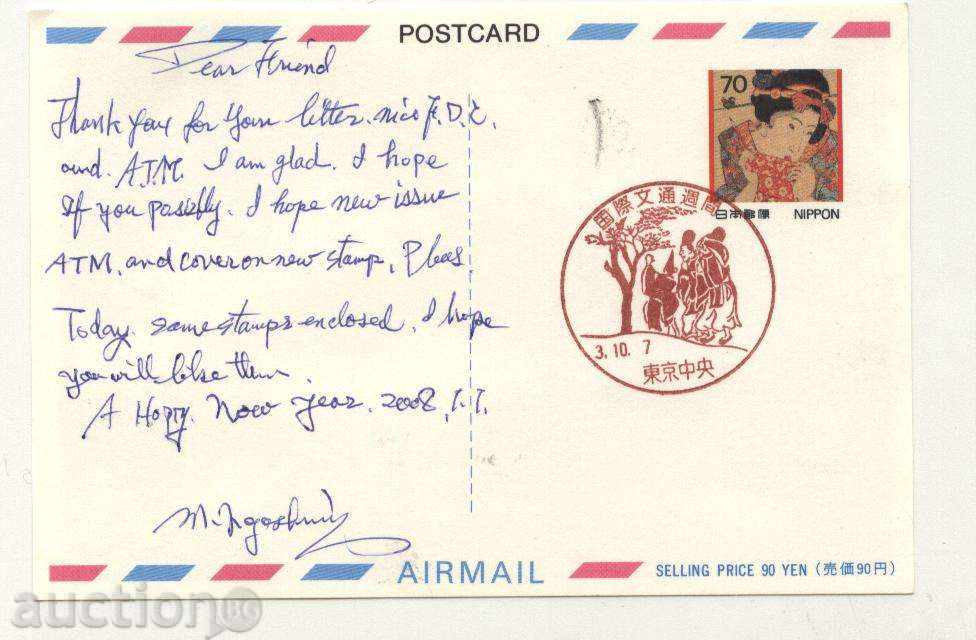 POSTCARD
Dear Friend
Thank you for your letter. nice F.D.C.
and. A.T.M. I am glad. I hope
if you possibly. I hope new issue
ATM. and cover on new stamp. Pleas.
Today. same stamps enclosed. I hope
you will like them.
A Happy. New Year. 2008. 1. 1.
70
日本郵便 NIPPON
国際文通週間
3. 10. 7
東京中央
AIRMAIL
SELLING PRICE 90 YEN (売価90円)
auction BG